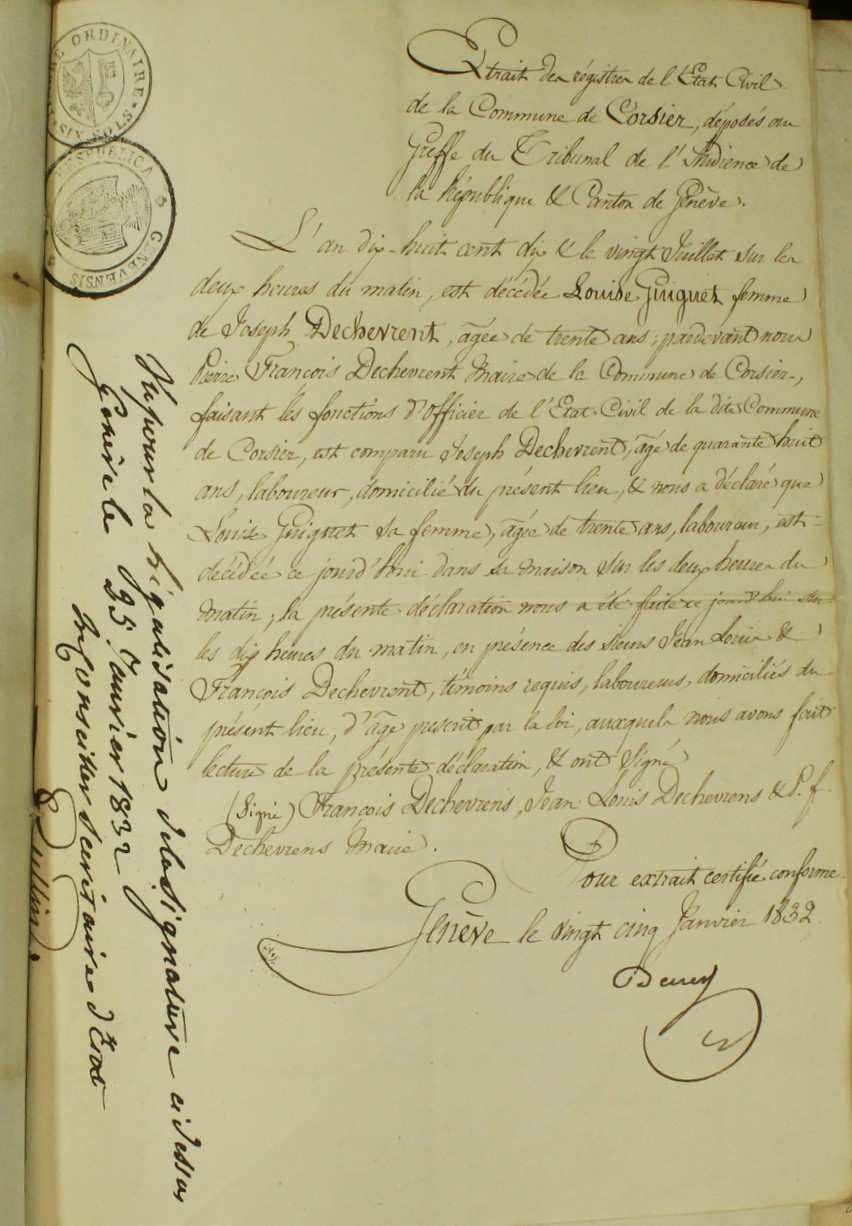 ORDINAIRE
SIX SOLS
RESPUBLICA GENEVENSIS
Extrait des régistres de l'Etat Civil
de la Commune de Corsier, déposés au
Greffe du Tribunal de l'Audience de
la République & Canton de Genève.
L'an dix-huit cent dix & le vingt Juillet sur les
deux heures du matin, est décédée Louise Guiguet femme
de Joseph Dechevrent, agée de trente ans; pardevant nous
Pierre François Dechevrent Maire de la Commune de Corsier,
faisant les fonctions d'officier de l'Etat-Civil de la dite Commune
de Corsier, est comparu Joseph Dechevrent, agé de quarante huit
ans, laboureur, domicilié du présent lieu, & nous a déclaré que
Louise Guiguet sa femme, agée de trente ans, laboureur, est
décédée ce jourd'hui dans sa maison sur les deux heures du
matin; la présente déclaration nous a été faite ce jourd'hui sur
les dix heures du matin, en présence des sieurs Jean Louis &
François Dechevrent, témoins requis, laboureurs, domiciliés du
présent lieu, d'âge prescrit par la loi, auxquels nous avons fait
lecture de la présente déclaration, & ont signé
(Signé) François Dechevrens, Jean Louis Dechevrens & P. f.
Dechevrens Maire.
Pour extrait certifié conforme
Genève le vingt cinq Janvier 1832
Vu pour la légalisation de la signature ci dessus
Genève le 25 Janvier 1832
Un Conseiller Secrétaire d'Etat